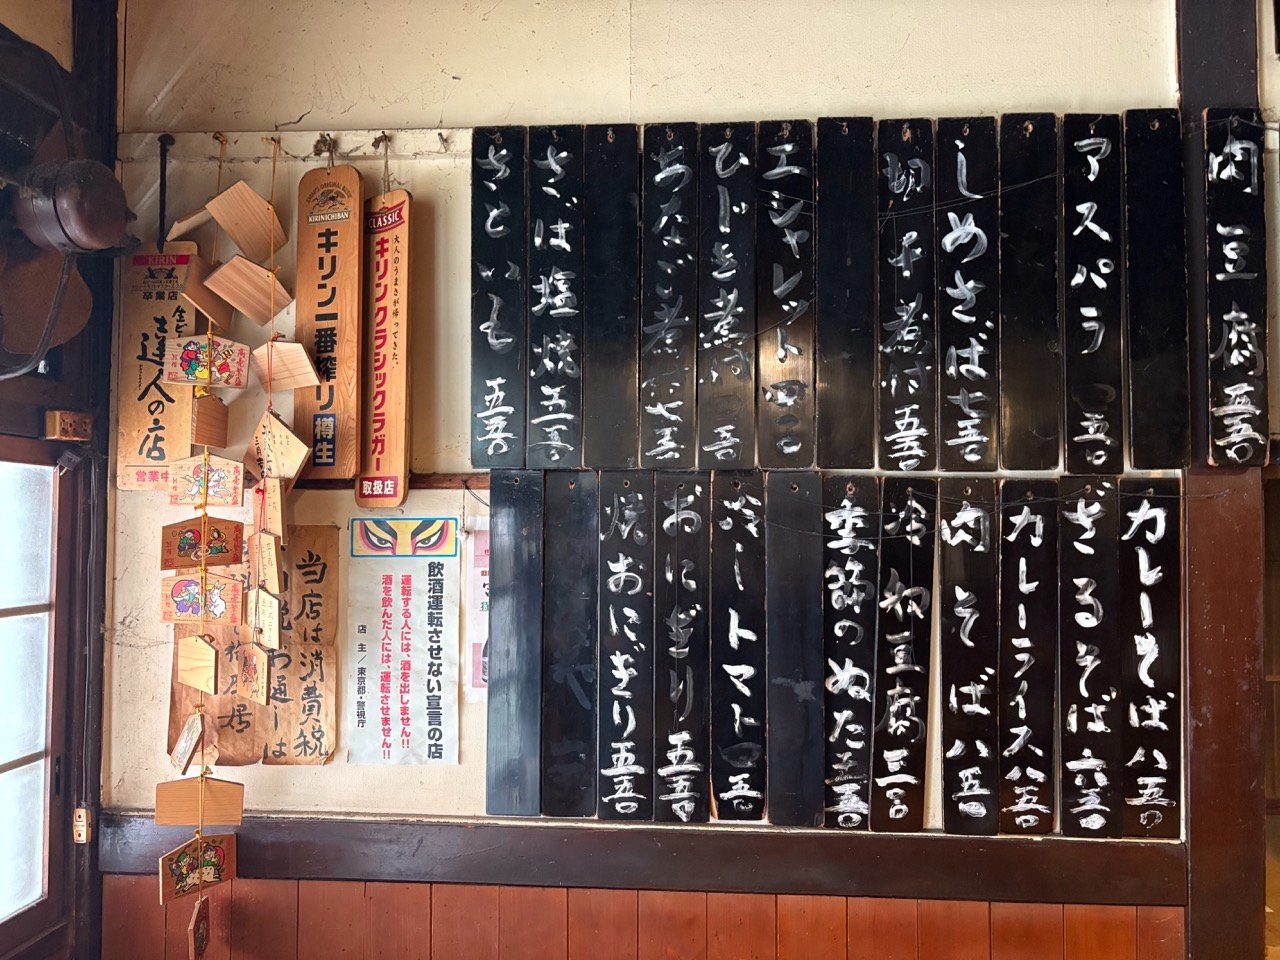 肉豆腐 五五〇
アスパラ 四五〇
しめさば 七五〇
切干煮付 五五〇
エシャレット 四五〇
ひじき煮付 四五〇
あなご煮付 七五〇
さば塩焼 五五〇
さといも 五五〇
カレーそば 八五〇
ざるそば 六五〇
カレーライス 八五〇
肉そば 八五〇
冷奴豆腐 三五〇
季節のぬた 五五〇
冷しトマト 四五〇
おにぎり 五五〇
焼おにぎり 五五〇
CLASSIC
大人のうまさが帰ってきた。
キリンクラシックラガー
取扱店
KIRIN ICHIBAN
キリン一番搾り 樽生
KIRIN
卒業店
生ビール
達人の店
営業中
飲酒運転させない宣言の店
運転する人には、酒を出しません!!
酒を飲んだ人には、運転させません!!
店 主/東京都・警視庁
当店は消費税
お通しは